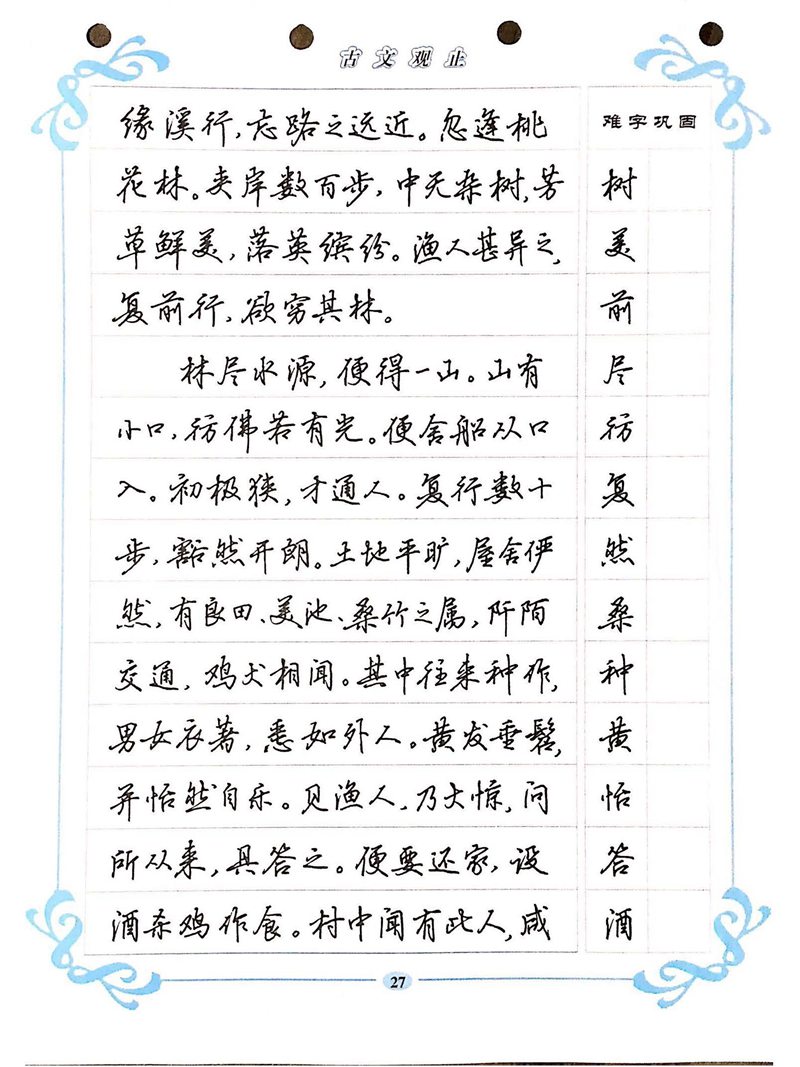 古文观止
缘溪行,忘路之远近。忽逢桃
花林。夹岸数百步,中无杂树,芳
草鲜美,落英缤纷。渔人甚异之,
复前行,欲穷其林。
林尽水源,便得一山。山有
小口,彷佛若有光。便舍船从口
入。初极狭,才通人。复行数十
步,豁然开朗。土地平旷,屋舍俨
然,有良田、美池、桑竹之属,阡陌
交通,鸡犬相闻。其中往来种作,
男女衣著,悉如外人。黄发垂髫,
并怡然自乐。见渔人,乃大惊,问
所从来,具答之。便要还家,设
酒杀鸡作食。村中闻有此人,咸
难字巩固
树
美
前
尽
彷
复
然
桑
种
黄
怡
答
酒
27